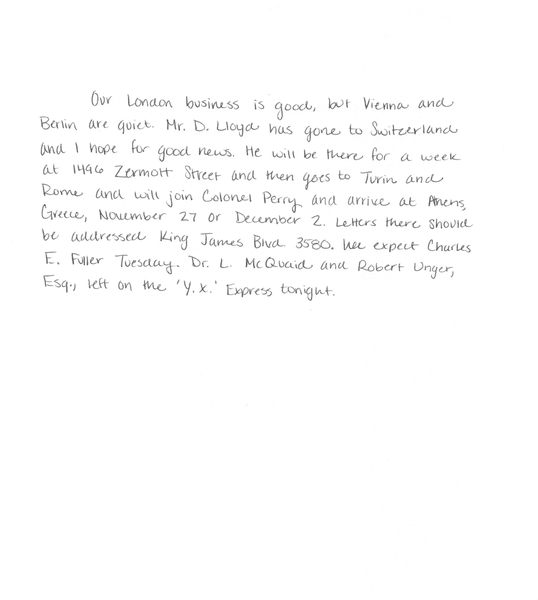 Our London business is good, but Vienna and
Berlin are quiet. Mr. D. Lloyd has gone to Switzerland
and I hope for good news. He will be there for a week
at 1496 Zermott Street and then goes to Turin and
Rome and will join Colonel Perry and arrive at Athens,
Greece, November 27 or December 2. Letters there should
be addressed King James Blvd 3580. We expect Charles
E. Fuller Tuesday. Dr. L. McQuaid and Robert Unger,
Esq., left on the 'Y.X.' Express tonight.